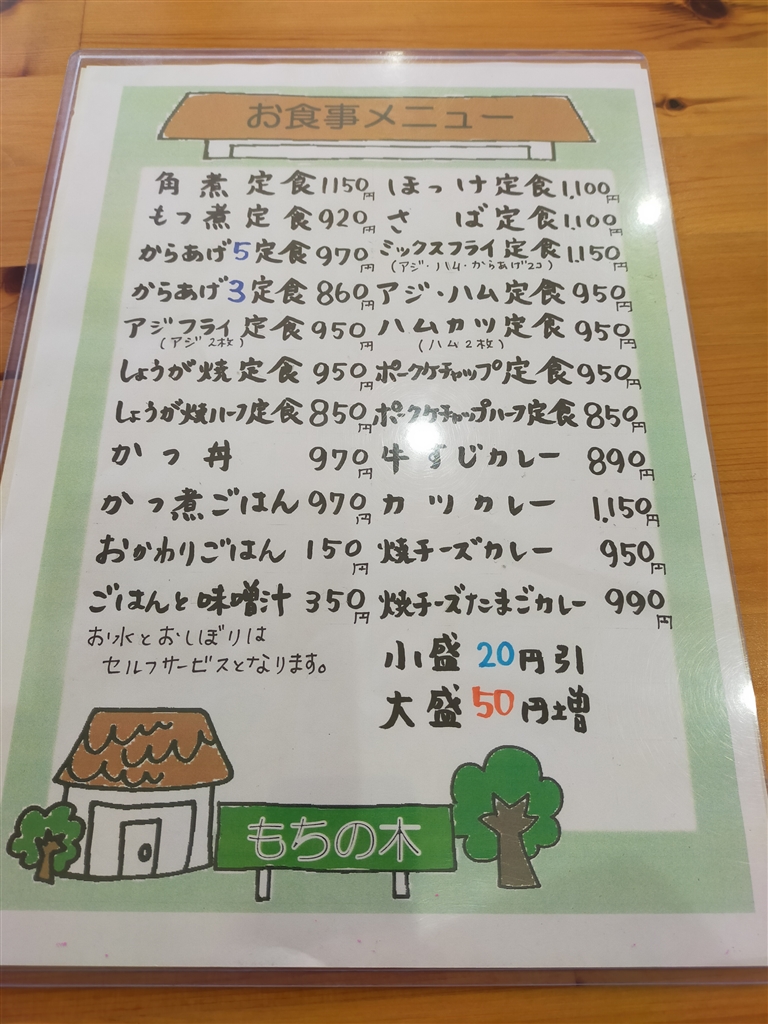 お食事メニュー
角煮定食 1150円
もつ煮定食 920円
からあげ5定食 970円
からあげ3定食 860円
アジフライ定食 950円
(アジ2枚)
しょうが焼定食 950円
しょうが焼ハーフ定食 850円
かつ丼 970円
かつ煮ごはん 970円
おかわりごはん 150円
ごはんと味噌汁 350円
お水とおしぼりは
セルフサービスとなります。
ほっけ定食 1,100円
さば定食 1,100円
ミックスフライ定食 1,150円
(アジ・ハム・からあげ2コ)
アジ・ハム定食 950円
ハムカツ定食 950円
(ハム2枚)
ポークケチャップ定食 950円
ポークケチャップハーフ定食 850円
牛すじカレー 890円
カツカレー 1,150円
焼チーズカレー 950円
焼チーズたまごカレー 990円
小盛 20円引
大盛 50円増
もちの木